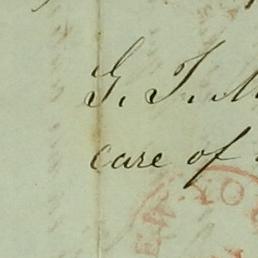 G. T. M
care of
EW-YO